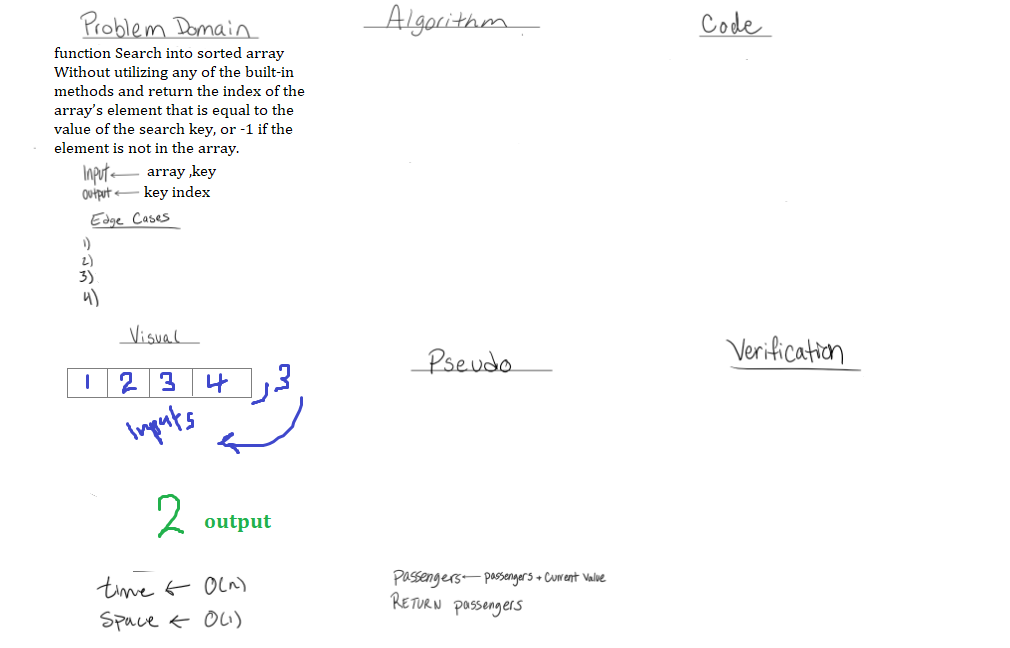 Problem Domain
function Search into sorted array
Without utilizing any of the built-in
methods and return the index of the
array's element that is equal to the
value of the search key, or -1 if the
element is not in the array.
Input ← array ,key
output ← key index
Edge Cases
1)
2)
3)
4)
Visual
1 2 3 4 , 3
Inputs
2 output
time ← O(n)
Space ← O(1)
Algorithm
Pseudo
Passengers ← passengers + Current Value
RETURN passengers
Code
Verification